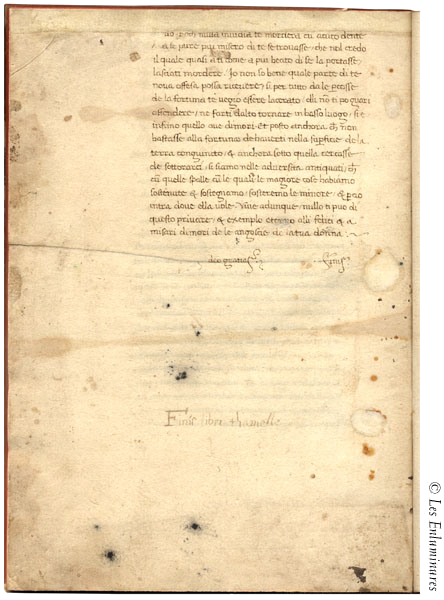 do [...] nulla invidia te mordera cu acuto dente
, a se pure piu misero di te se trovasse, che nel credo
il quale quasi a ti dove a piu beato di se la portasse
lasciati mordere. Io non so bene quale parte di te
nova offesa possa ricevere, si per tutto da le
de la fortuna te vegio essere lacerato, elli nō ti po guari
offendere, ne farti dalto tornare in basso luogo, si e
infimo quello ove dimori. Et posto anchora
bastasse alla fortuna de haverti nella supficie de la
terra congiunto, & anchora sotto quella cercasse
de sotterarci, si siamo nelle adversita antiquati,
cū quelle spalle cū le quali le magiore cose habiamo
sostenute & sostegniamo, sosteremo le minore, &
intra dove ella vole. Vive adunque, nullo ti puo di
questo privare, & exemplo etterno alli felici & a
miseri dimori de le angoscie de la tua donna
deo gratias finis
Finis libri